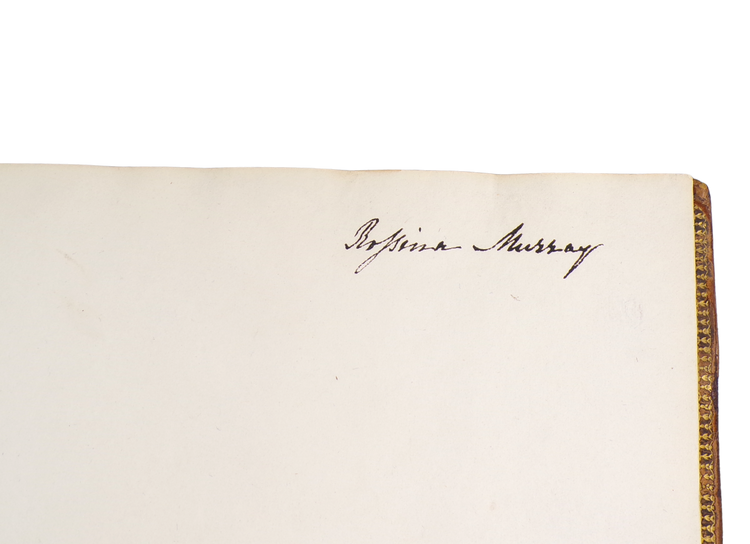 Rossina Murray